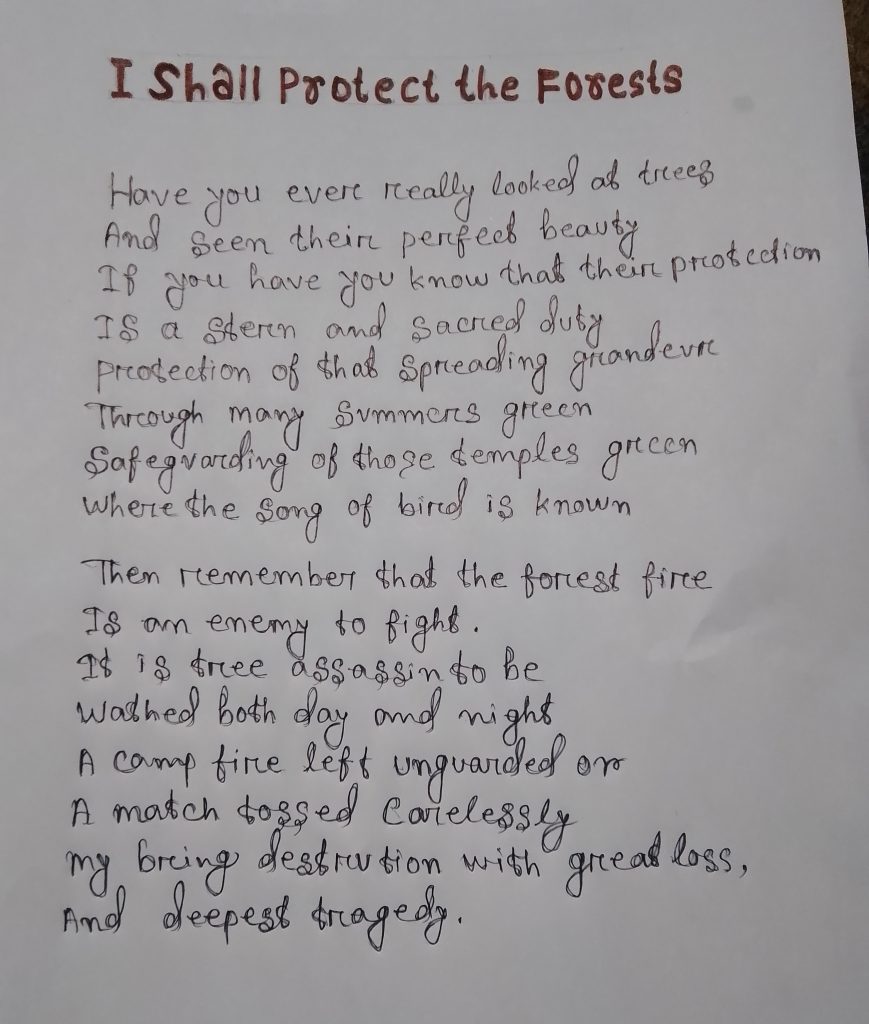 I Shall Protect the Forests
Have you ever really looked at trees
And seen their perfect beauty
If you have you know that their protection
IS a stern and sacred duty
protection of that spreading grandeur
Through many summers green
Safeguarding of those temples green
Where the song of bird is known
Then remember that the forest fire
Is an enemy to fight.
It is tree assassin to be
Wathed both day and night
A camp fire left unguarded or
A match tossed carelessly
my bring destrution with great loss,
And deepest tragedy.